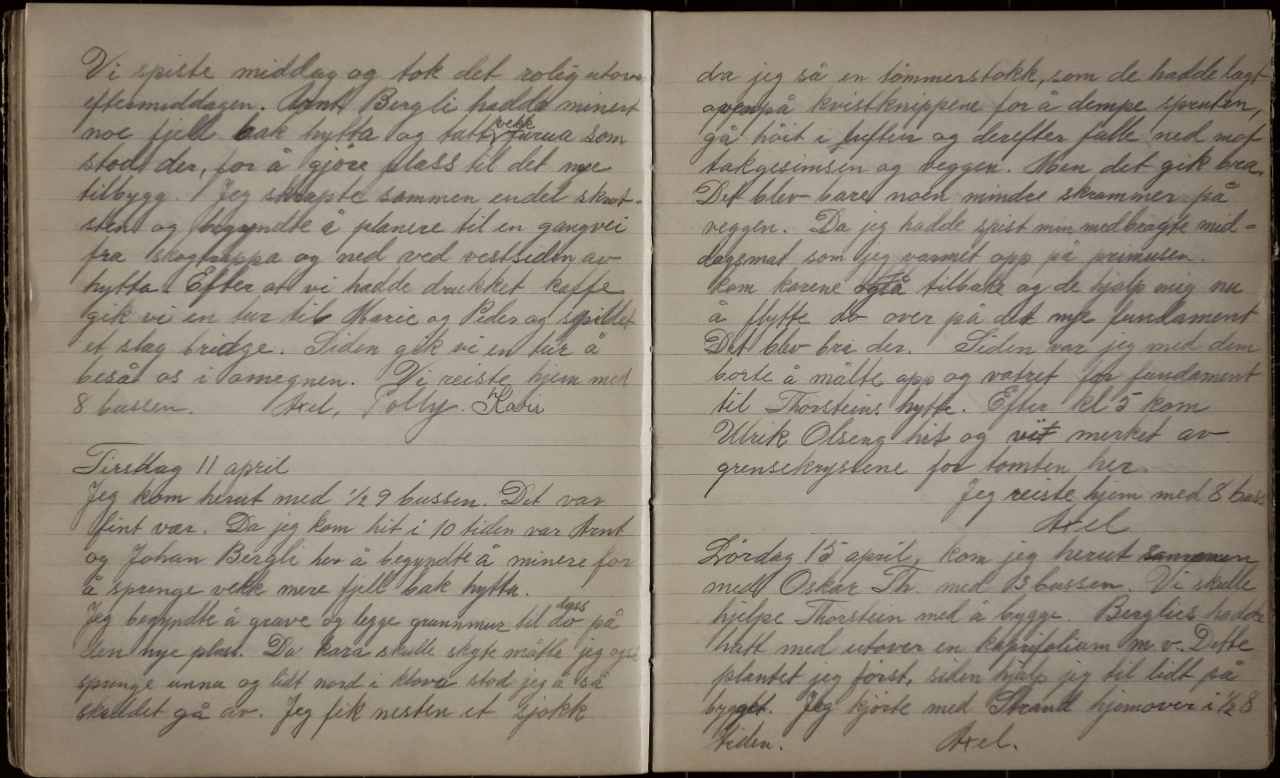 Vi spiste middag og tok det rolig utover
eftermiddagen. Arnt Bergli hadde minert
noe fjell bak hytta og tatt vekk furua som
stod der, for å gjøre plass til det nye
tilbygg. Jeg skrapte sammen endel skrot-
sten og begyndte å planere til en gangvei
fra skogtrappa og ned ved vestsiden av
hytta. Efter at vi hadde drukket kaffe
gik vi en tur til Marie og Peder og spildet
et slag bridge. Siden gik vi en tur å
beså os i omegnen. Vi reiste hjem med
8 bussen. Axel, Polly.
Tirsdag 11 april
Jeg kom herut med ½ 9 bussen. Det var
fint vær. Da jeg kom hit i 10 tiden var Arnt
og Johan Bergli her å begyndte å minere for
å sprenge vekk mere fjell bak hytta.
Jeg begyndte å grave og legge grunnmur til do på
den nye plass. Da kara skulle skyte måtte jeg også
springe unna og lidt nord i kløva stod jeg å så
skuddet gå av. Jeg fik nesten et sjokk
da jeg så en tömmerstokk, som de hadde lagt
ovenpå kvistknippene for å dempe spruten,
gå høit i luften og derefter falle ned mot
takgesimsen og veggen. Men det gik bra.
Det blev bare noen mindre skrammer på
veggen. Da jeg hadde spist min medbragte mid-
dagsmat som jeg varmet opp på primusen.
kom karene også tilbake og de hjalp mig nu
å flytte do over på det nye fundament
Det blev bra der. Siden var jeg med dem
borte å målte opp og vatret for fundament
til Thorsteins hytte. Efter kl 5 kom
Ulrik Olseng hit og vi merket av
grensekryssene for tomten her.
Jeg reiste hjem med 8 buss
Axel
Lördag 15 april, kom jeg herut sammen
med Oskar Th. med 3 bussen. Vi skulle
hjelpe Thorstein med å bygge. Berglies hadde
hatt med utover en kaprifolium m.v. Dette
plantet jeg først, siden hjalp jeg til lidt på
bygget. Jeg kjørte med Strand hjemover i ½ 8
tiden. Axel.